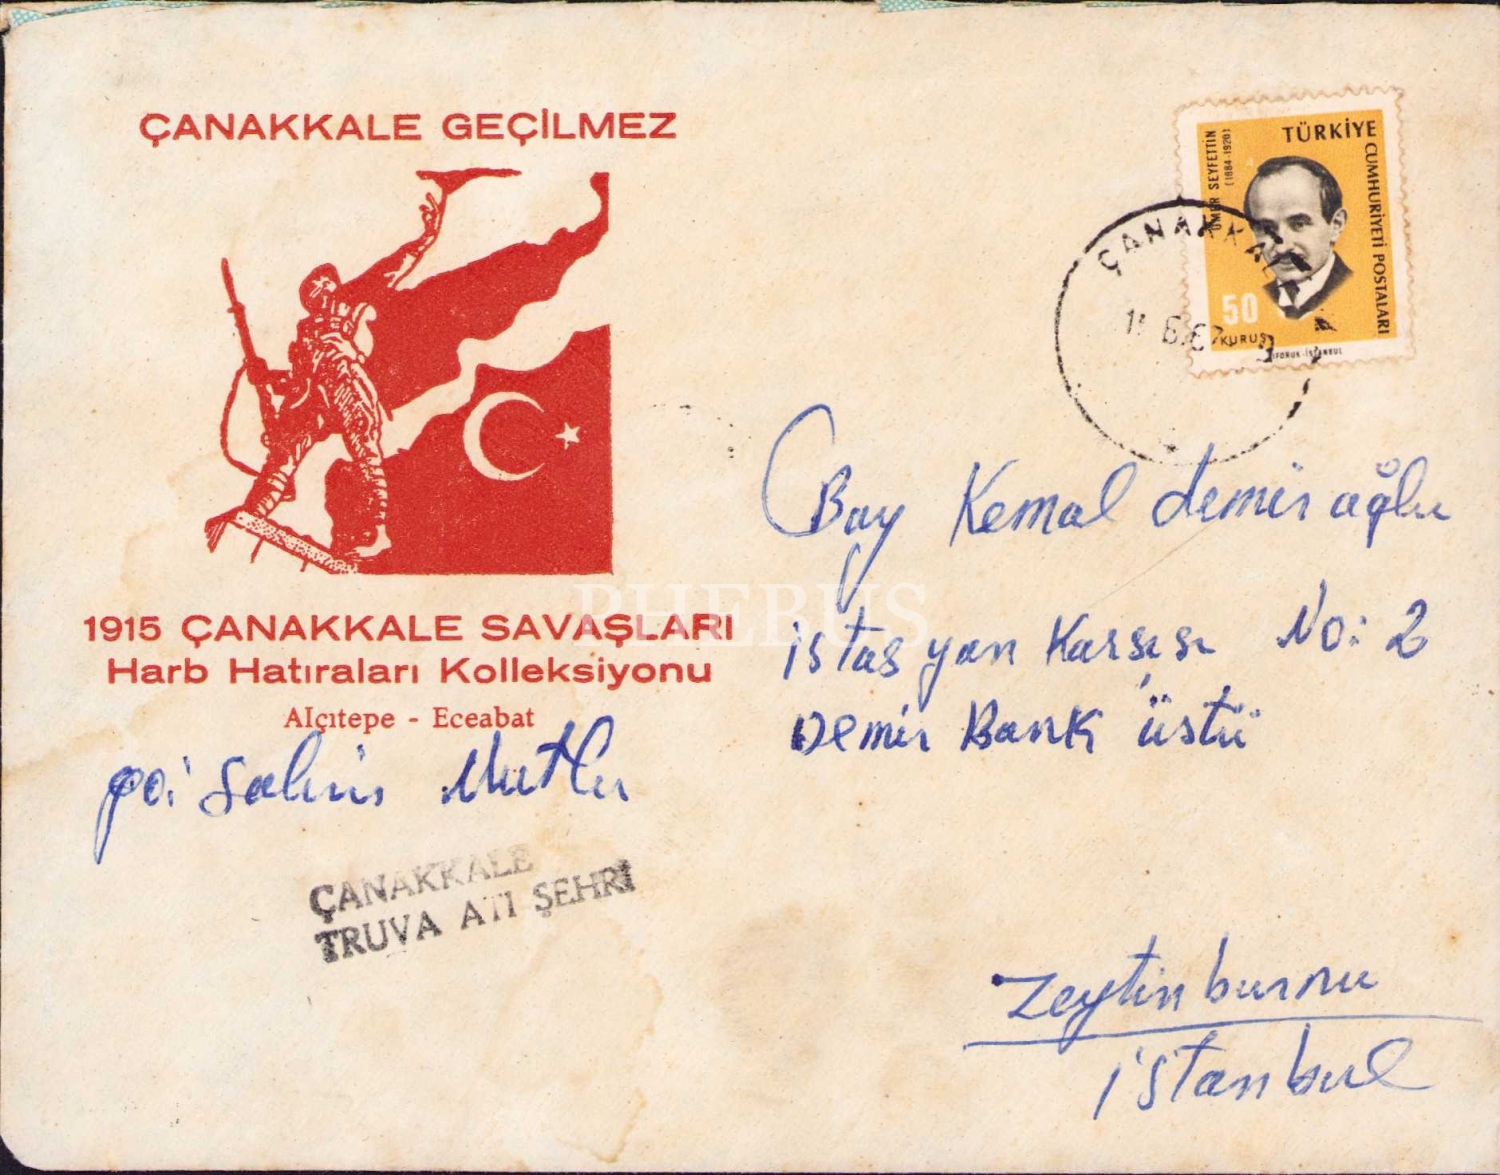 ÇANAKKALE GEÇİLMEZ
1915 ÇANAKKALE SAVAŞLARI
Harb Hatıraları Kolleksiyonu
Alçıtepe - Eceabat
Salim Mutlu
ÇANAKKALE
TRUVA ATI ŞEHRİ
TÜRKİYE
CUMHURİYETİ POSTALARI
ÖMER SEYFETTİN
(1884-1920)
50
KURUŞ
İSTANBUL
ÇANAKKALE
Bay Kemal demiroğlu
istasyon Karşısı No: 2
Demir Bank üstü
Zeytinburnu
istanbul
PHEBUS